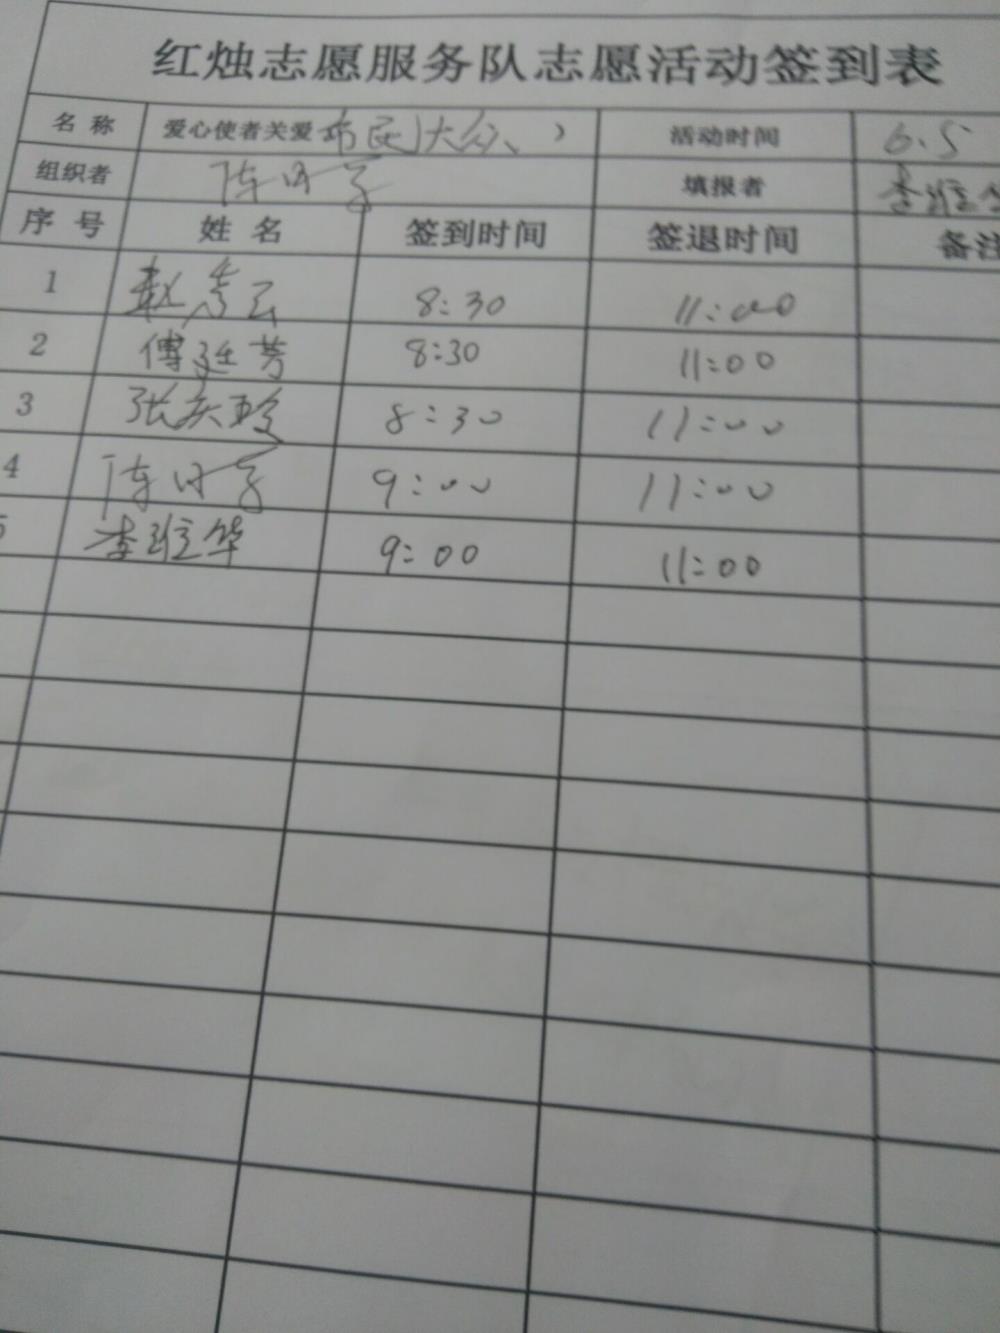 红烛志愿服务队志愿活动签到表
名称 爱心使者关爱市民(大众) 活动时间 6.5
组织者 陈 填报者 李
序号 姓名 签到时间 签退时间 备注
1 赵 云 8:30 11:00
2 傅廷芳 8:30 11:00
3 张庆玲 8:30 11:00
4 陈 9:00 11:00
5 李 华 9:00 11:00